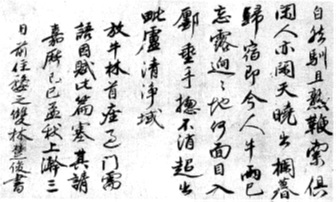 自然馴且熟鞭索俱
閑人亦閑天曉出欄暮
歸宿即今人牛兩已
忘露迥々地何面目入
鄽垂手揔不消超出
毗盧清淨域
放牛林首座過門需
語因賦此篇塞其請
嘉曆己巳孟秋上澣三
日前住婺之雙林楚俊書